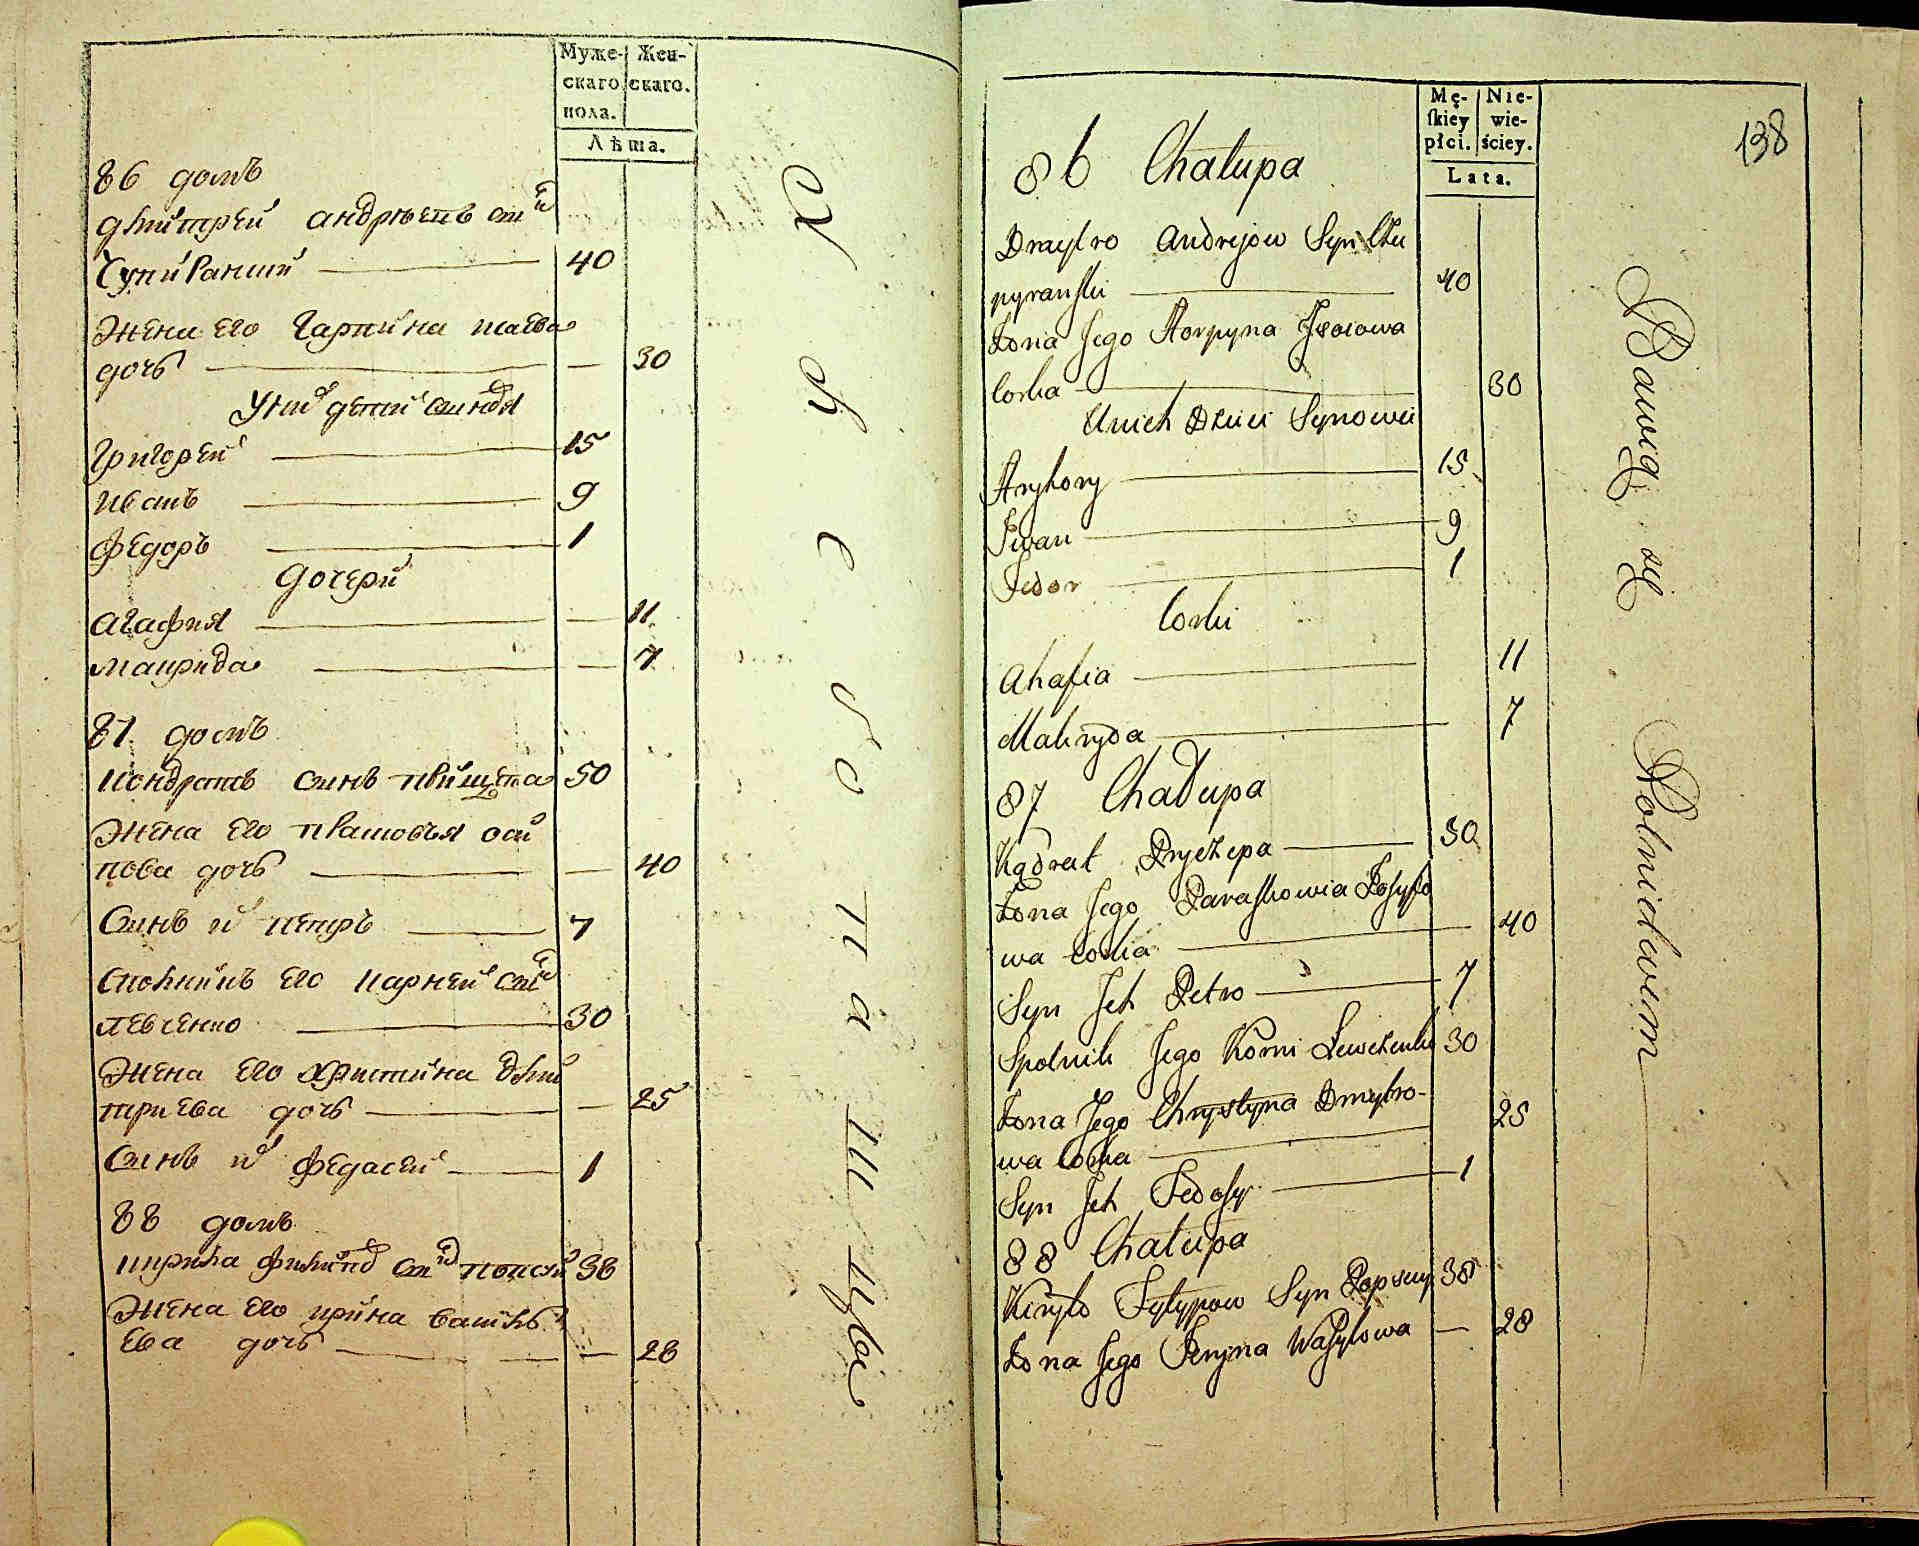 Муже-
скаго
пола.
Жен-
скаго.
Лѣта.
86 домъ
Дмитрей андрѣевъ сиⁿ
Чупиранский 40
жена его Гарпина исаева
дочь 30
У ниⁿ дети синовя
Григорей 15
иванъ 9
Федоръ 1
Дочери
агафия 11
макрида 7
87 домъ
кондратъ синъ прищепа 50
жена его прасковъя оси
пова дочь 40
синъ иⁿ петръ 7
споlникъ его карней сиⁿ
левченко 30
жена его христина дми
триева дочь 25
синъ иⁿ федасей 1
88 домъ
кирила филипⁿ сиⁿ 38
жена его ирина василь
ева дочь 28
Хлебопашцы
Mę-
skiey
płci.
Nie-
wie-
ściey.
Lata.
138
86 Chałupa
Dmytro Andrejow Syn Czu
pyranski 40
Żona Jego Horpyna Isaiowa
Corka 30
U nich Dzieci Synowie
Hryhory 15
Iwan 9
Fedor 1
Corki
Ahafia 11
Makryda 7
87 Chałupa
Kądrat Pryszczepa 50
Żona Jego Paraskowia Josypo
wa Corka 40
Syn Jch Petro 7
Spolnik Jego Korni Lewczenko 30
Żona Jego Chrystyna Dmytro-
wa Corka 25
Syn Jch Fedosy 1
88 Chałupa
Kiryło Fyłypow Syn 38
Żona Jego Iryna Wasylowa 28
Bawią się Rolnictwem